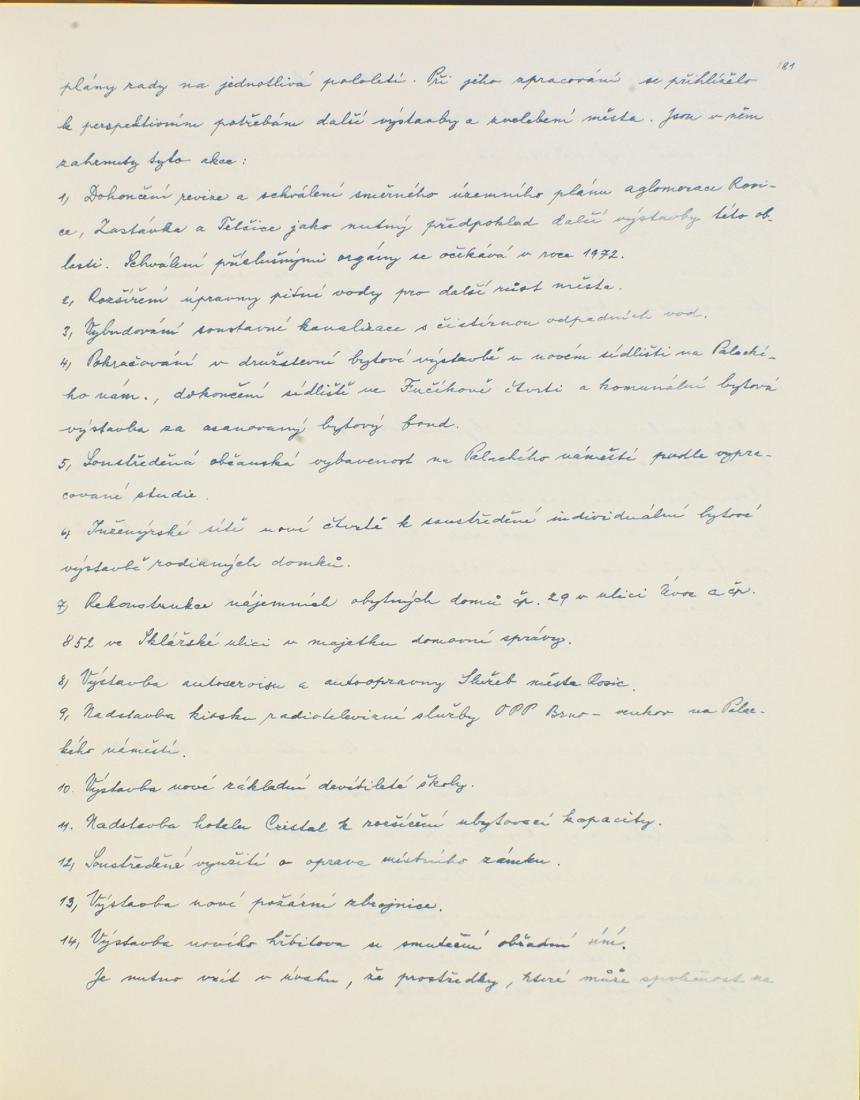 181
plány rady na jednotlivá pololetí. Při jeho zpracování se přihlíželo
k perspektivním potřebám další výstavby a zvelebení města. Jsou v něm
zahrnuty tyto akce:
1, Dokončení revize a schválení směrného územního plánu aglomerace Rosi-
ce, Zastávka a Tetčice jako nutný předpoklad další výstavby této ob-
lasti. Schválení příslušnými orgány se očekává v roce 1972.
2, Rozšíření úpravny pitné vody pro další růst města.
3, Vybudování soustavné kanalizace s čistírnou odpadních vod.
4, Pokračování v družstevní bytové výstavbě v novém sídlišti na Palacké-
ho nám., dokončení sídliště ve Fučíkově čtvrti a komunální bytová
výstavba za asanovaný bytový fond.
5, Soustředěná občanská vybavenost na Palackého náměstí podle vypra-
cované studie.
6, Inženýrské sítě nové čtvrtě k soustředěné individuální bytové
výstavbě rodinných domků.
7, Rekonstrukce nájemních obytných domů čp. 29 v ulici Úvoz a čp.
852 ve Sklářské ulici v majetku domovní správy.
8, Výstavba autoservisu a autoopravny Služeb města Rosic.
9, Nadstavba kiosku radiotelevizní služby OPP Brno – venkov na Palac-
kého náměstí.
10. Výstavba nové základní devítileté školy.
11. Nadstavba hotelu Cristal k rozšíření ubytovací kapacity.
12, Soustředěné využití a oprava místního zámku.
13, Výstavba nové požární zbrojnice.
14, Výstavba nového hřbitova se smuteční obřadní síní.
Je nutno vzít v úvahu, že prostředky, které může společnost na